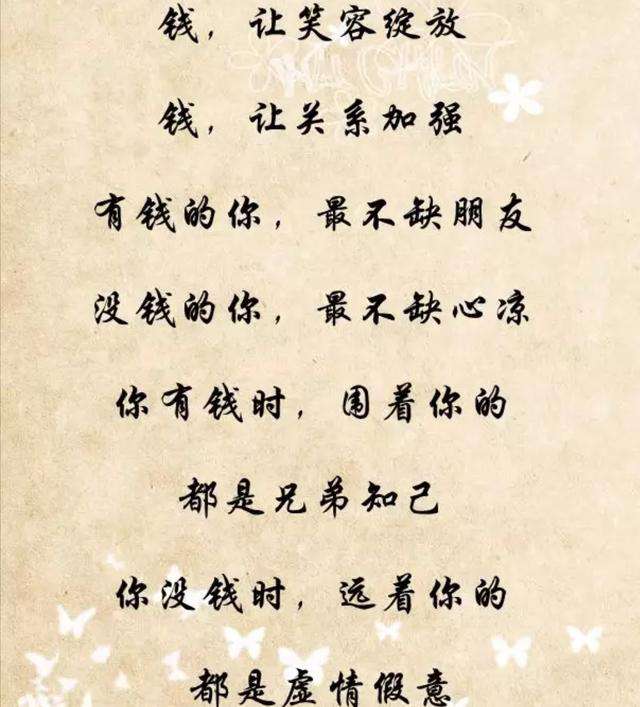 钱，让笑容绽放
钱，让关系加强
有钱的你，最不缺朋友
没钱的你，最不缺心凉
你有钱时，围着你的
都是兄弟知己
你没钱时，远着你的
都是虚情假意